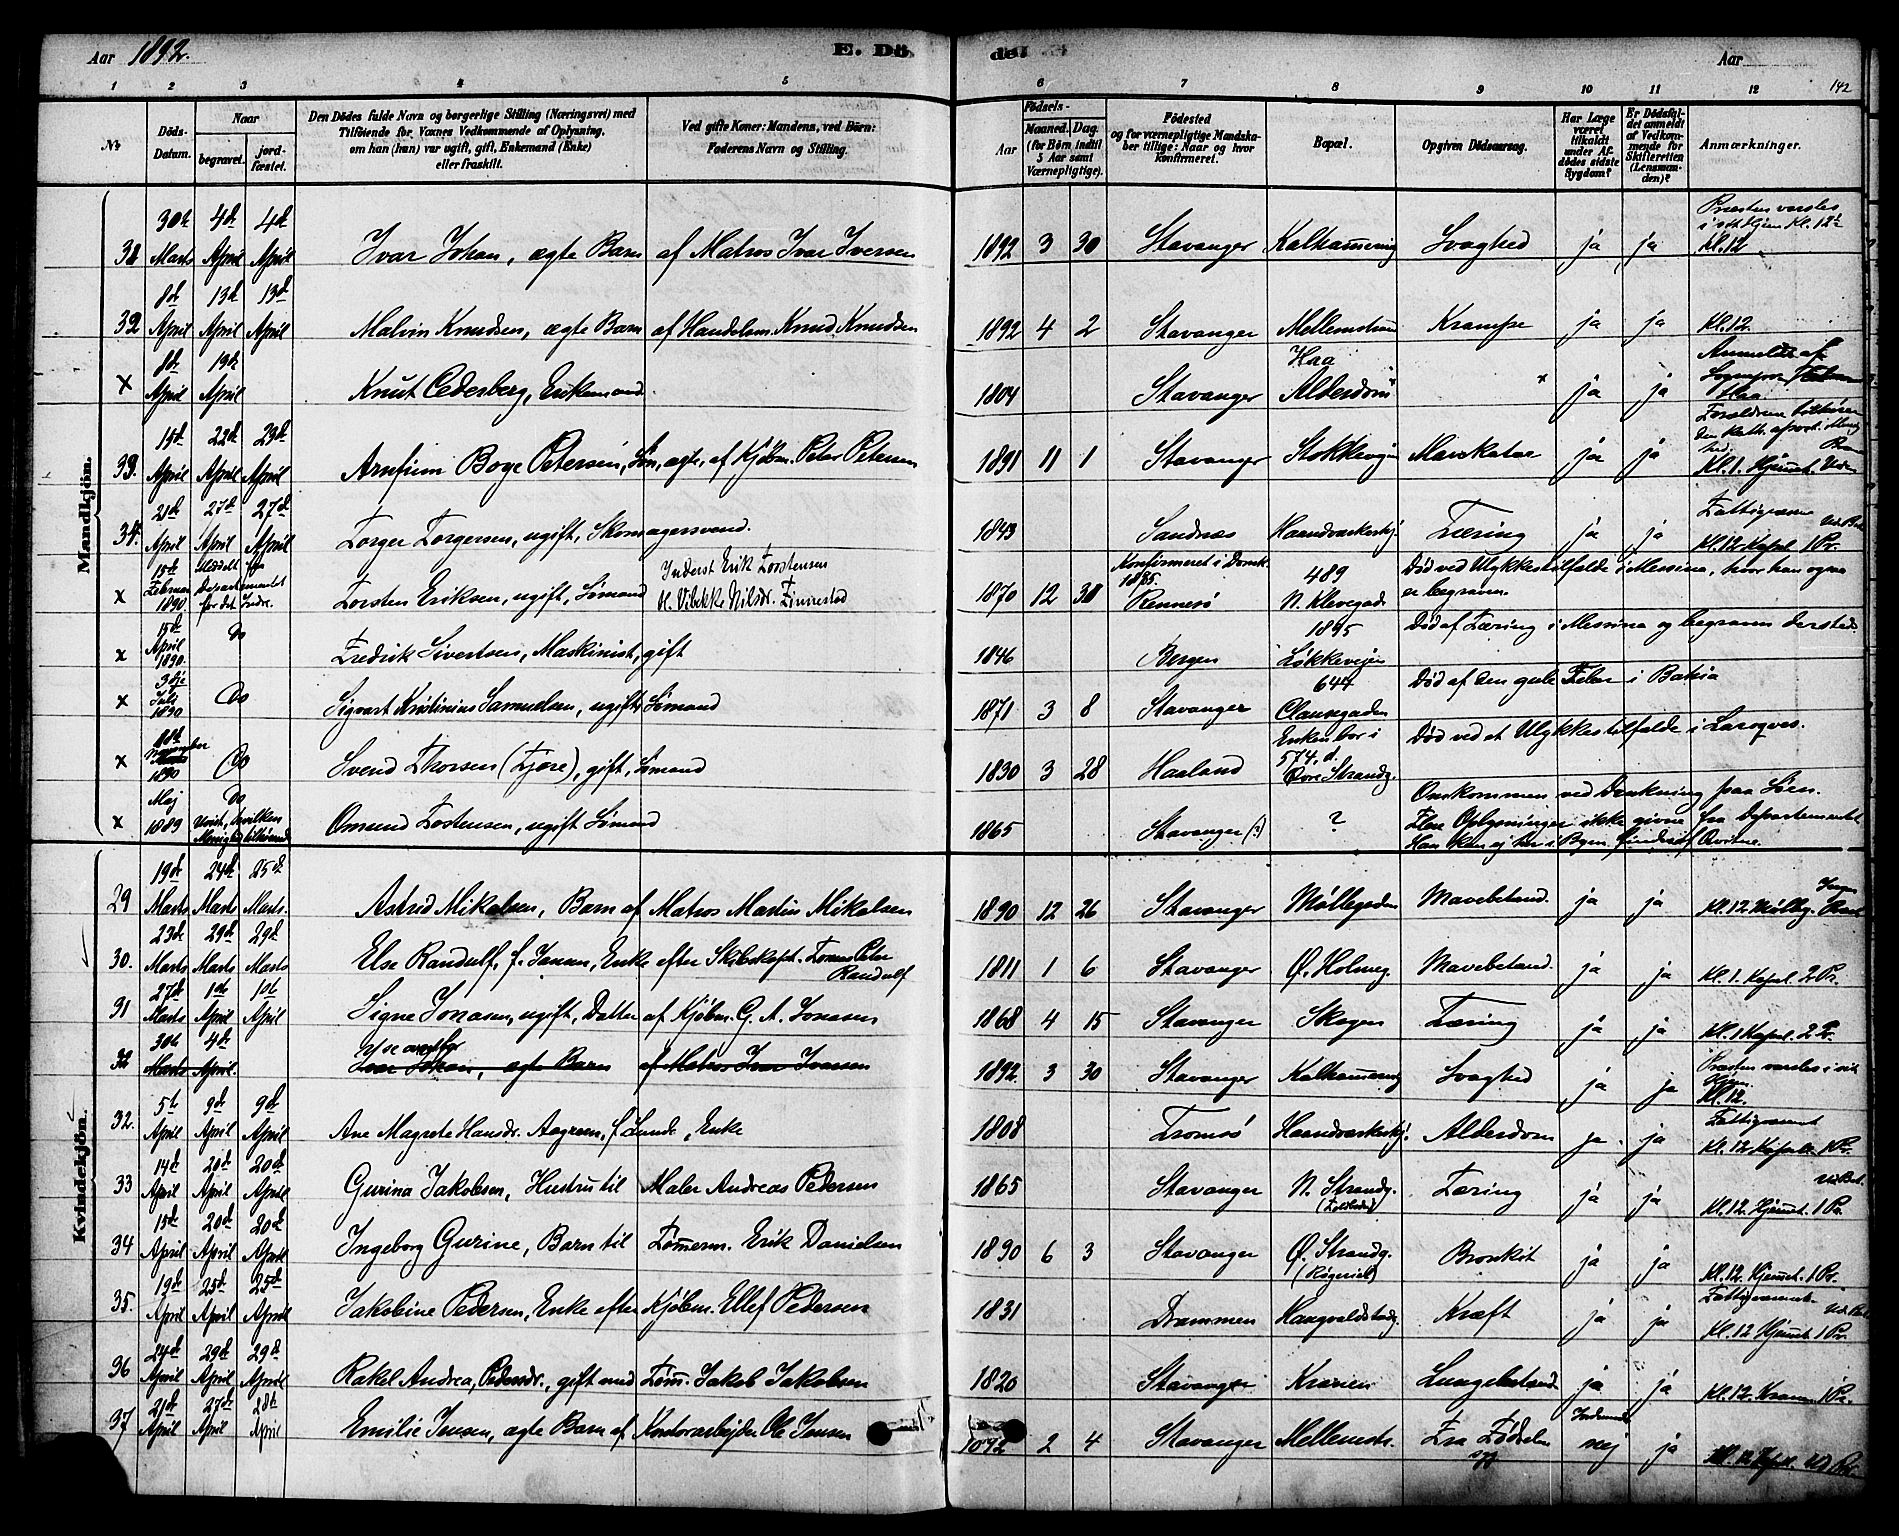 Aar 1892. E. Dö- de! Aar
142
1 2 3 4 5 6 7 8 9 10 11 12
No Döds-Datum. Naar begravet. jord-fæstet. Den Dödes fulde Navn og borgerlige Stilling (Næringsvei) med Tilföiende for Voxnes Vedkommende af Oplysning, om han (hun) var ugift, gift, Enkemand (Enke) eller fraskilt. Ved gifte Koner: Mandens, ved Börn: Faderens Navn og Stilling. Födsels- Aar Maaned. Dag. (for Börn indtil 5 Aar samt Værnepligtige). Födested og for værnepligtige Mandska-ber tillige: Naar og hvor konfirmeret. Bopæl. Opgiven Dödsaarsag. Har Læge været tilkaldt under Af-dödes sidste Sygdom? Er Dödsfal-det anmeldt af Vedkom-mende for Skifteretten (Lensman-den)? Anmærkninger.
Mandkjön.
31 30te Marts 4de April 4de April Ivar Johan, ægte Barn af Matros Ivar Iversen 1892 3 30 Stavanger Svaghed ja ja Kl. 12
32 8de April 13de April 13de April Malvin Knudsen, ægte Barn af Handelsm. Knud Knudsen 1892 4 2 Stavanger Krampe ja ja Kl. 12.
x 8de April April Knut Cedersberg, Enkemand. 1804 Stavanger Haa Alderdom " x ja ja Anmeldt af Haa
33. 15de April 22de April 23de April Arnfinn Boye Petersen, Søn, ægte, af Kjøbm. Peter Petersen 1891 11 1 Stavanger Stokkevejen ja ja Kl. 1. Hjemmet
34. 21de April 27de April 27de April Torger Torgersen, ugift, Skomagersvend. 1843 Sandnæs Haandværkerskj. Tæring ja ja Fattigvæsenet Kl. 12 Kapel 1 Pr.
x 15de Februar 1890 Meddelt fra Departementet for det Indre. Torsten Eriksen, ugift, Sømand Inderst Erik Torstensen 1870 12 30 Konfirmeret i Domk. 1885. Rennesø 489 N. Klevegad. Død ved Ulykkestilfælde i Messina, hvor han ogsaa er begraven.
x 15de April 1890. Do Fredrik Sivertsen, Maskinist, gift 1846 Bergen 1895 Løkkevejen Død af Tæring i Messina og begraven dersted.
x 3dje Juli 1890 Do Sigvart Kristinius Samuelsen, ugift, Sømand 1871 3 8 Stavanger 644 Clausegaden Død af den gule Feber i Bahia
x 18de November 1890 Do Svend Thorsen (Tjøre), gift, Sømand 1830 3 28 Haaland Enken bor i 574. d. Øvre Strandg. Død ved et Ulykkestilfælde i
x Maj 1889 Do Uvist, hvilken Menighed tilhørende Omund Tostensen, ugift Sømand 1865 Stavanger (?) ? Omkommen ved Drukning paa Søen. Flere Oplysninger ikke givne fra Departementet
Kvindekjön.
29 19de Marts 24de Marts 25de Marts. Astrid Mikalsen, Barn af Matros Martin Mikalsen 1890 12 26 Stavanger Møllegaden Mavebetænd. ja ja Kl. 12 Mølleg.
30. 23de Marts 29de Marts 29de Marts Else Randulf, f. Jansen, Enke efter Skibskapt. Tomas Peter Randulf 1811 1 6 Stavanger Ø. Holmeg. Mavebetænd. ja ja Kl. 1. Kapel. 2 Pr.
31 27de Marts 1ste April 1ste April Signe Jonasen, ugift, Datter af Kjøbm. G. A. Jonasen 1868 4 15 Stavanger Skagen Tæring ja ja Kl. 1 Kapel. 2 Pr.
32 30te Marts 4de April. Ivar Johan, ægte Barn af Matros Ivar Iversen 1892 3 30 Stavanger Svaghed ja ja Kl. 12.
32. 5te April 9de April 9de April Ane Magrete Hansdr. Aagreen, f. Lunde, Enke 1808 Tromsø Haandværkerskj. Alderdom ja ja Fattigvæsenet Kl. 12 Kapelle 1 Pr.
33 14de April 20de April 20de April Gurina Jakobsen, Hustru til Maler Andreas Pedersen 1865 Stavanger N. Strandg. Tæring ja ja Kl. 12. Hjemmet. 1 Pr.
34 15de April 20de April 20de April Ingeborg Gurine, Barn til Tømmerm. Erik Danielsen 1890 6 3 Stavanger Ø. Strandg. Bronkit ja ja Kl. 12. Hjemmet. 1 Pr.
35. 19de April 25de April 25de April Jakobine Pedersen, Enke efter Kjøbm. Ellef Pedersen 1831 Drammen Haugvaldstadg. Kræft ja ja Fattigvæsenet. Kl. 12 Hjemmet 1 Pr.
36 24de April 29de April 29de April Rakel Andrea, Pedersdr., gift med Tømm. Jakob Jakobsen 1820 Stavanger Kraxien Lungebetænd. ja ja Kl. 12. 1 Pr.
37 21de April 27de April 28de April Emilie Jensen, ægte Barn af Kontorarbejder Ole Jensen 1892 2 4 Stavanger Mellemstr. Fra Fødselen syg nej ja